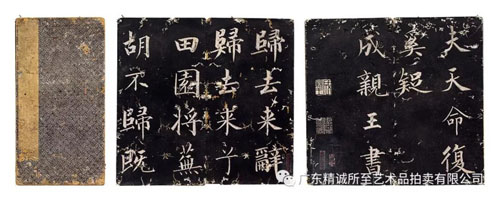 歸去来辭
歸去来兮
田園将蕪
胡不歸既
夫天命復
奚疑
成親王書
广东精诚所至艺术品拍卖有限公司